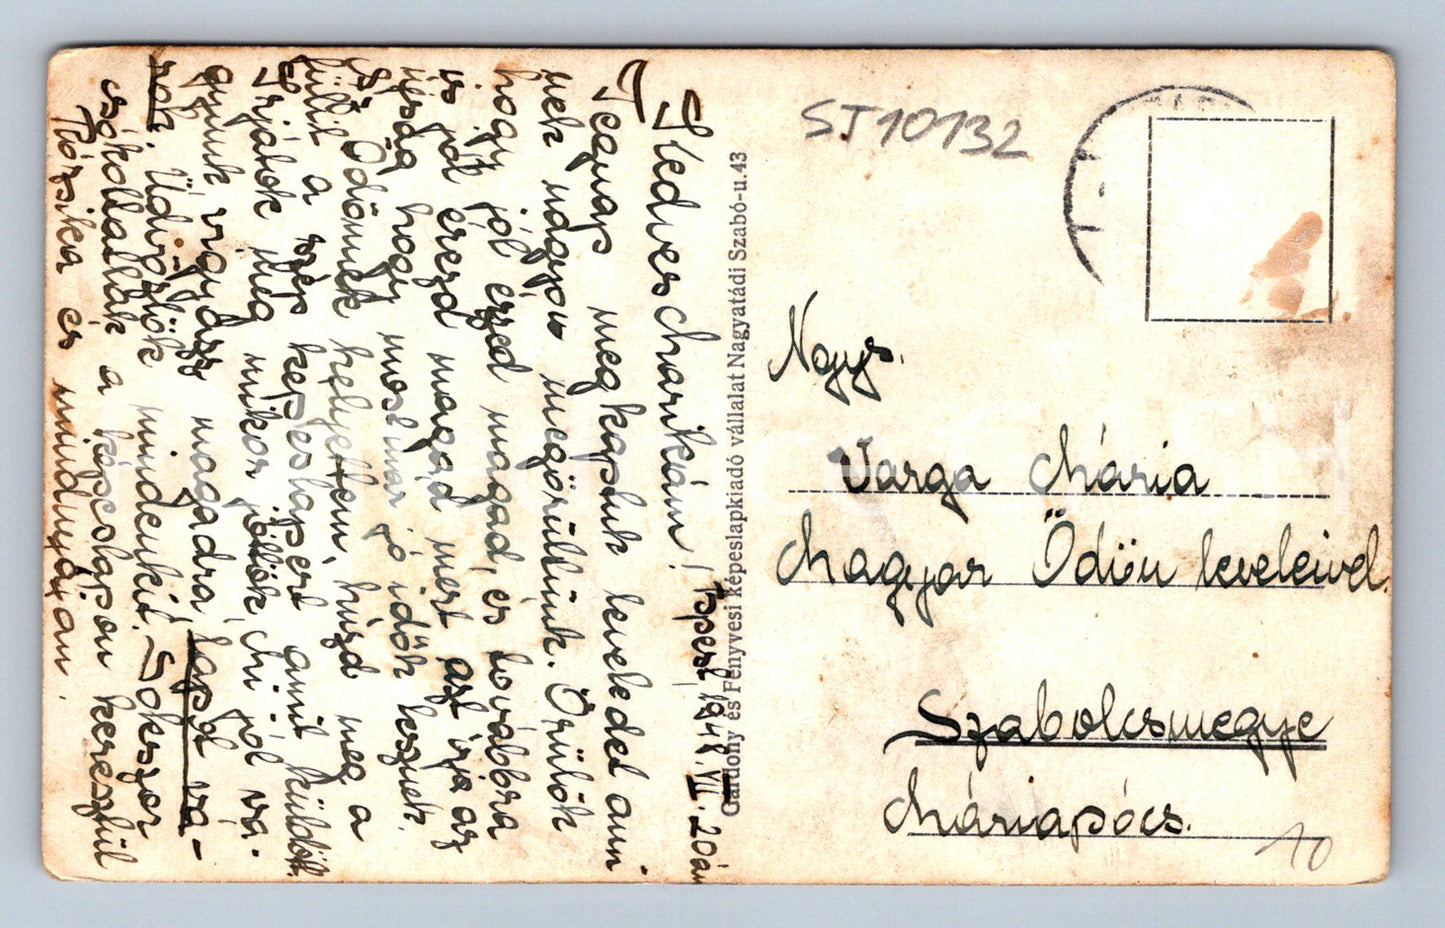 Kedves Márikám! 1941. VII. 20án
Tegnap megkaptuk leveledet aminek nagyon megörültünk. Örülök
hogy jól érzed magad, és továbbra
is jól érezd magad mert azt írja az
újság hogy mostmár jó idők lesznek.
Ödönnek helyettem, húzd meg a
fülét a szép képeslapért amit küldött.
Írjátok meg mikor jöttök. Mi jól va-
gyunk vigyázz magadra, lapot vá-
rok. Üdvözlök mindenkit. Sokszor
csókollallak a képeslapon keresztül
Rózsika és mindnyájan.
Gárdony és Fenyvesi képeslapkiadó vállalat Nagyatádi Szabó-u. 43
ST10132
Nagys.
Varga Mária
Magyar Ödön leveleivel.
Szabolcsmegye
Máriapócs.
10